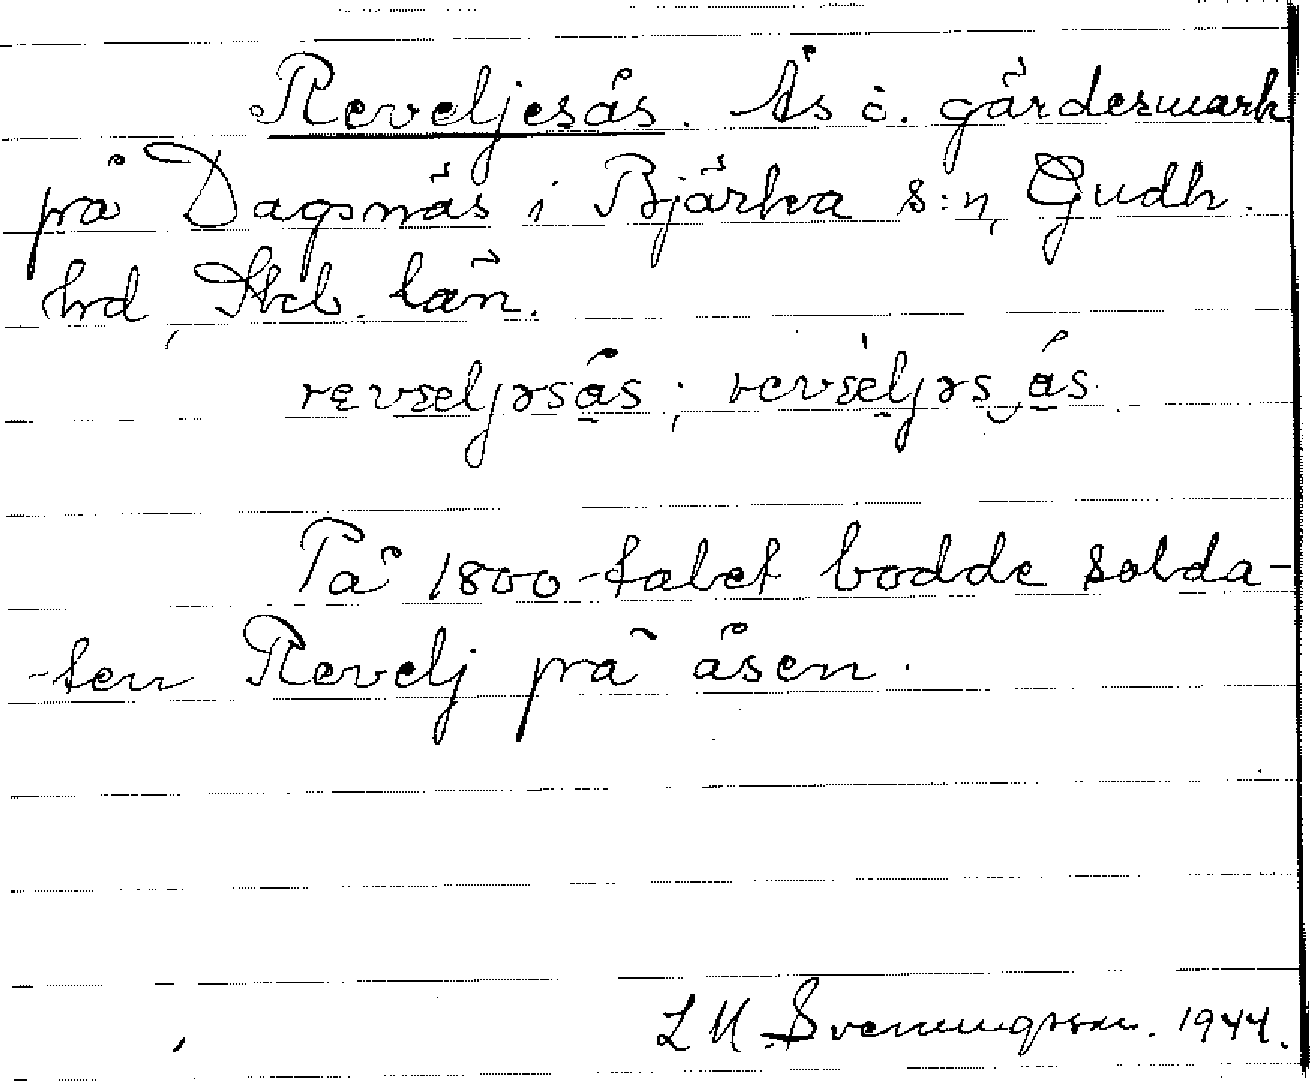 Reveljesås. Ås o. gärdesmark
på Dagsnäs i Bjärka s:n, Gudh.
hrd, Skb. län.
På 1800-talet bodde solda-
-ten Revelj på åsen.
L M Svenungsson. 1944.